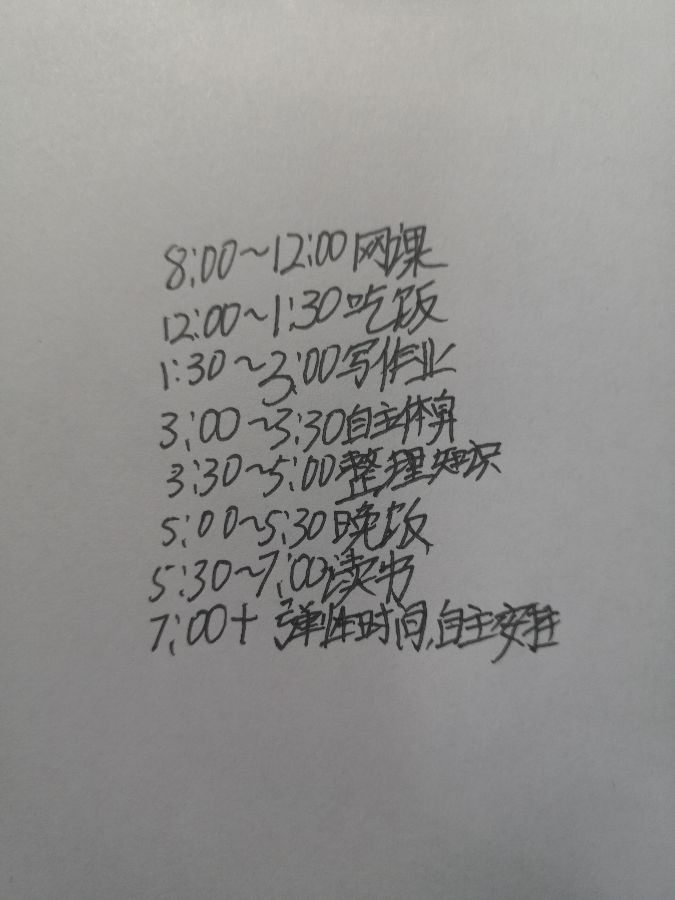 8:00~12:00网课
12:00~1:30吃饭
1:30~3:00写作业
3:00~3:30自主体
3:30~5:00整理知识
5:00~5:30晚饭
5:30~7:00读书
7:00+ 弹性时间,自主安排